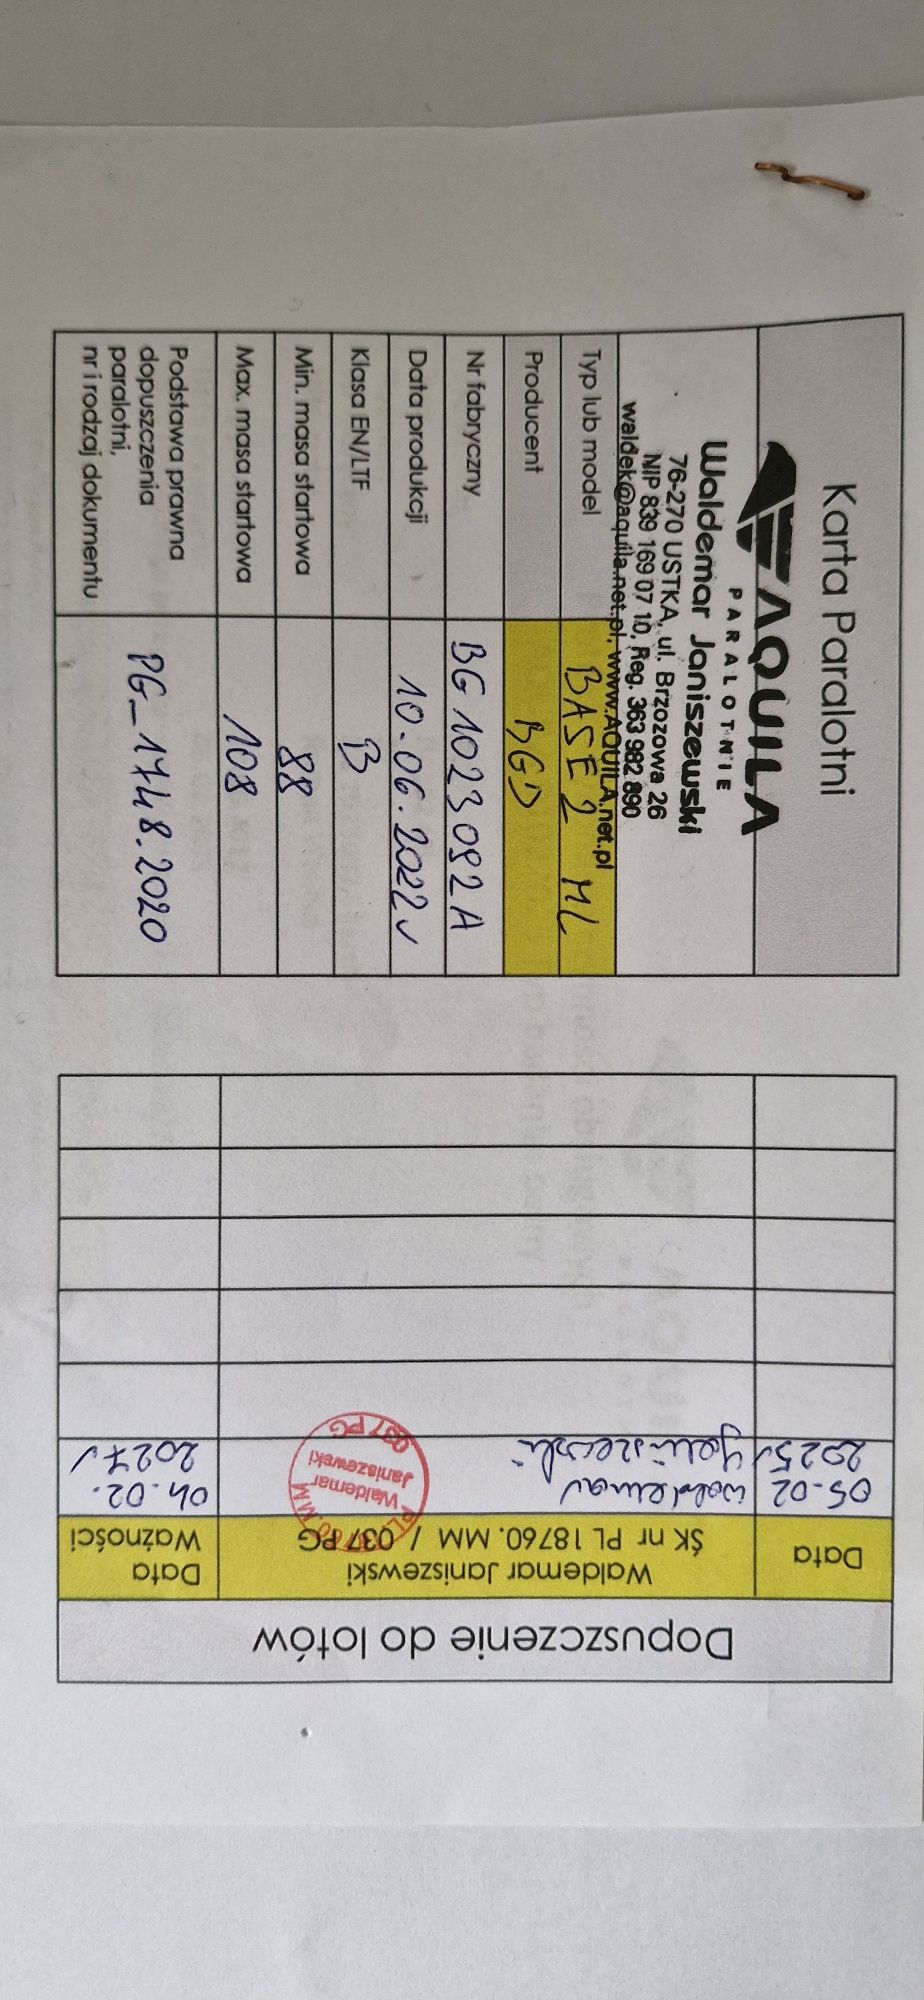 Karta Paralotni
AQUILA
PARALOTNIE
Waldemar Janiszewski
76-270 USTKA, ul. Brzozowa 26
NIP 839 169 07 10, Reg. 363 982 890
waldek@aquila.net.pl, www.AQUILA.net.pl
Typ lub model BASE 2 ML
Producent BGD
Nr fabryczny BG1023092A
Data produkcji 10.06.2022r
Klasa EN/LTF B
Min. masa startowa 88
Max. masa startowa 108
Podstawa prawna
dopuszczenia
paralotni,
nr i rodzaj dokumentu
PG_1748.2020
Dopuszczenie do lotów
Data
Waldemar Janiszewski
ŚK nr PL 18760. MM / 037 PG
Data
Ważności
05.02 Waldemar 04.02.
2025r Janiszewski 2027r
PL 18760.MM
Waldemar
Janiszewski
037 PG